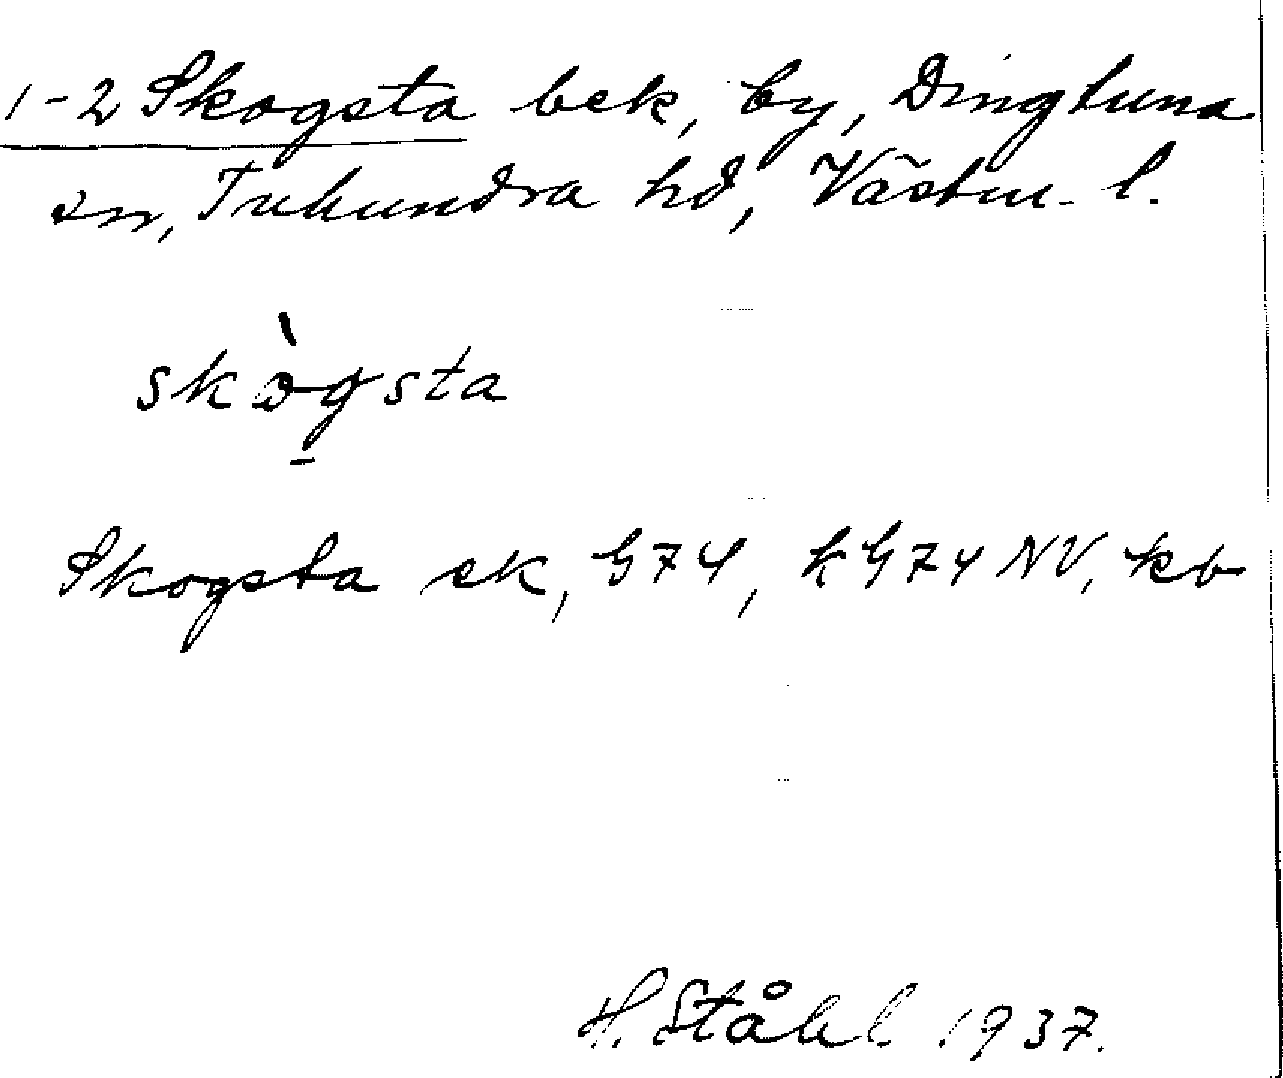 1-2 Skogsta bek, by, Dingtuna
sn, Tuhundra hd, Västm. l.
skògsta
Skogsta ek, G74, k G74 NV, kb
H. Ståhl 1937.